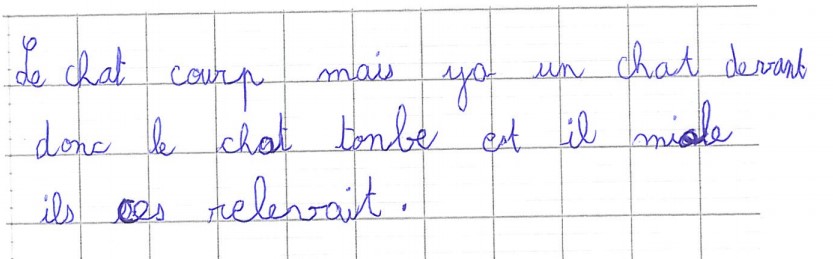 Le chat courp mais ya un chat devant
donc le chat tonbe est il miole
ils ces relevait.